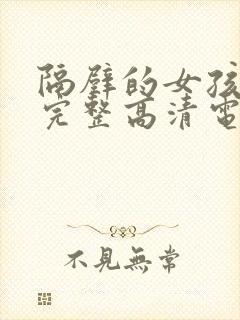 隔壁的女孩
完整高清電
不見無常